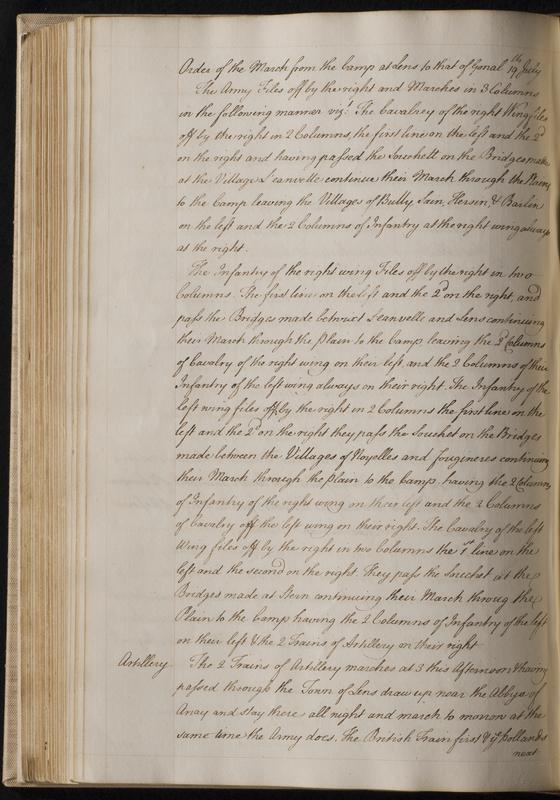 Order of the March from the Camp at Lens to that of Gonal 19th July
The Army Files off by the right and Marches in 3 Columns
in the following manner vizt. The Cavalrey of the right Wing files
off by the right in 2 Columns, the first line on the left and the 2d
on the right and having passed the Souchett on the Bridges make
at the Village Leanvelle continue their March through the Plain
to the Camp leaving the Villages of Bully, Hersin, & Barlin
on the left and the 2 Columns of Infantry at the right wing always
at the right.
The Infantry of the right wing Files off by the right in two
Columns. The first line on the left and the 2d on the right, and
pass the Bridges made betwixt Leanvelle and Lens continuing
their March through the plain to the Camp leaving the 2 Columns
of Cavalry of the right wing on their left, and the 2 Columns of their
Infantry of the left wing always on their right. The Infantry of the
left wing files off by the right in 2 Columns the first line on the
left and the 2d on the right they pass the Souchet on the Bridges
made between the Villages of Noyelles and fougineres continuing
their March through the plain to the Camp, having the 2 Columns
of Infantry of the right wing on their left and the 2 Columns
of Cavalry off the left wing on their right. The Cavalry of the left
Wing files off by the right in two Columns the 1st line on the
left and the second on the right. They pass the Souchet at the
Bridges made at Stern continuing their March throug the
Plain to the Camp having the 2 Columns of Infantry of the left
on their left & the 2 Trains of Artillery on their right
Artillery The 2 Trains of Artillery marches at 3 this Afternoon & having
passed through the Town of Lens draw up near the Abbye of
Anay and stay there all night and march to morrow at the
same time the Army does. The British Train first & ye Hollands
next